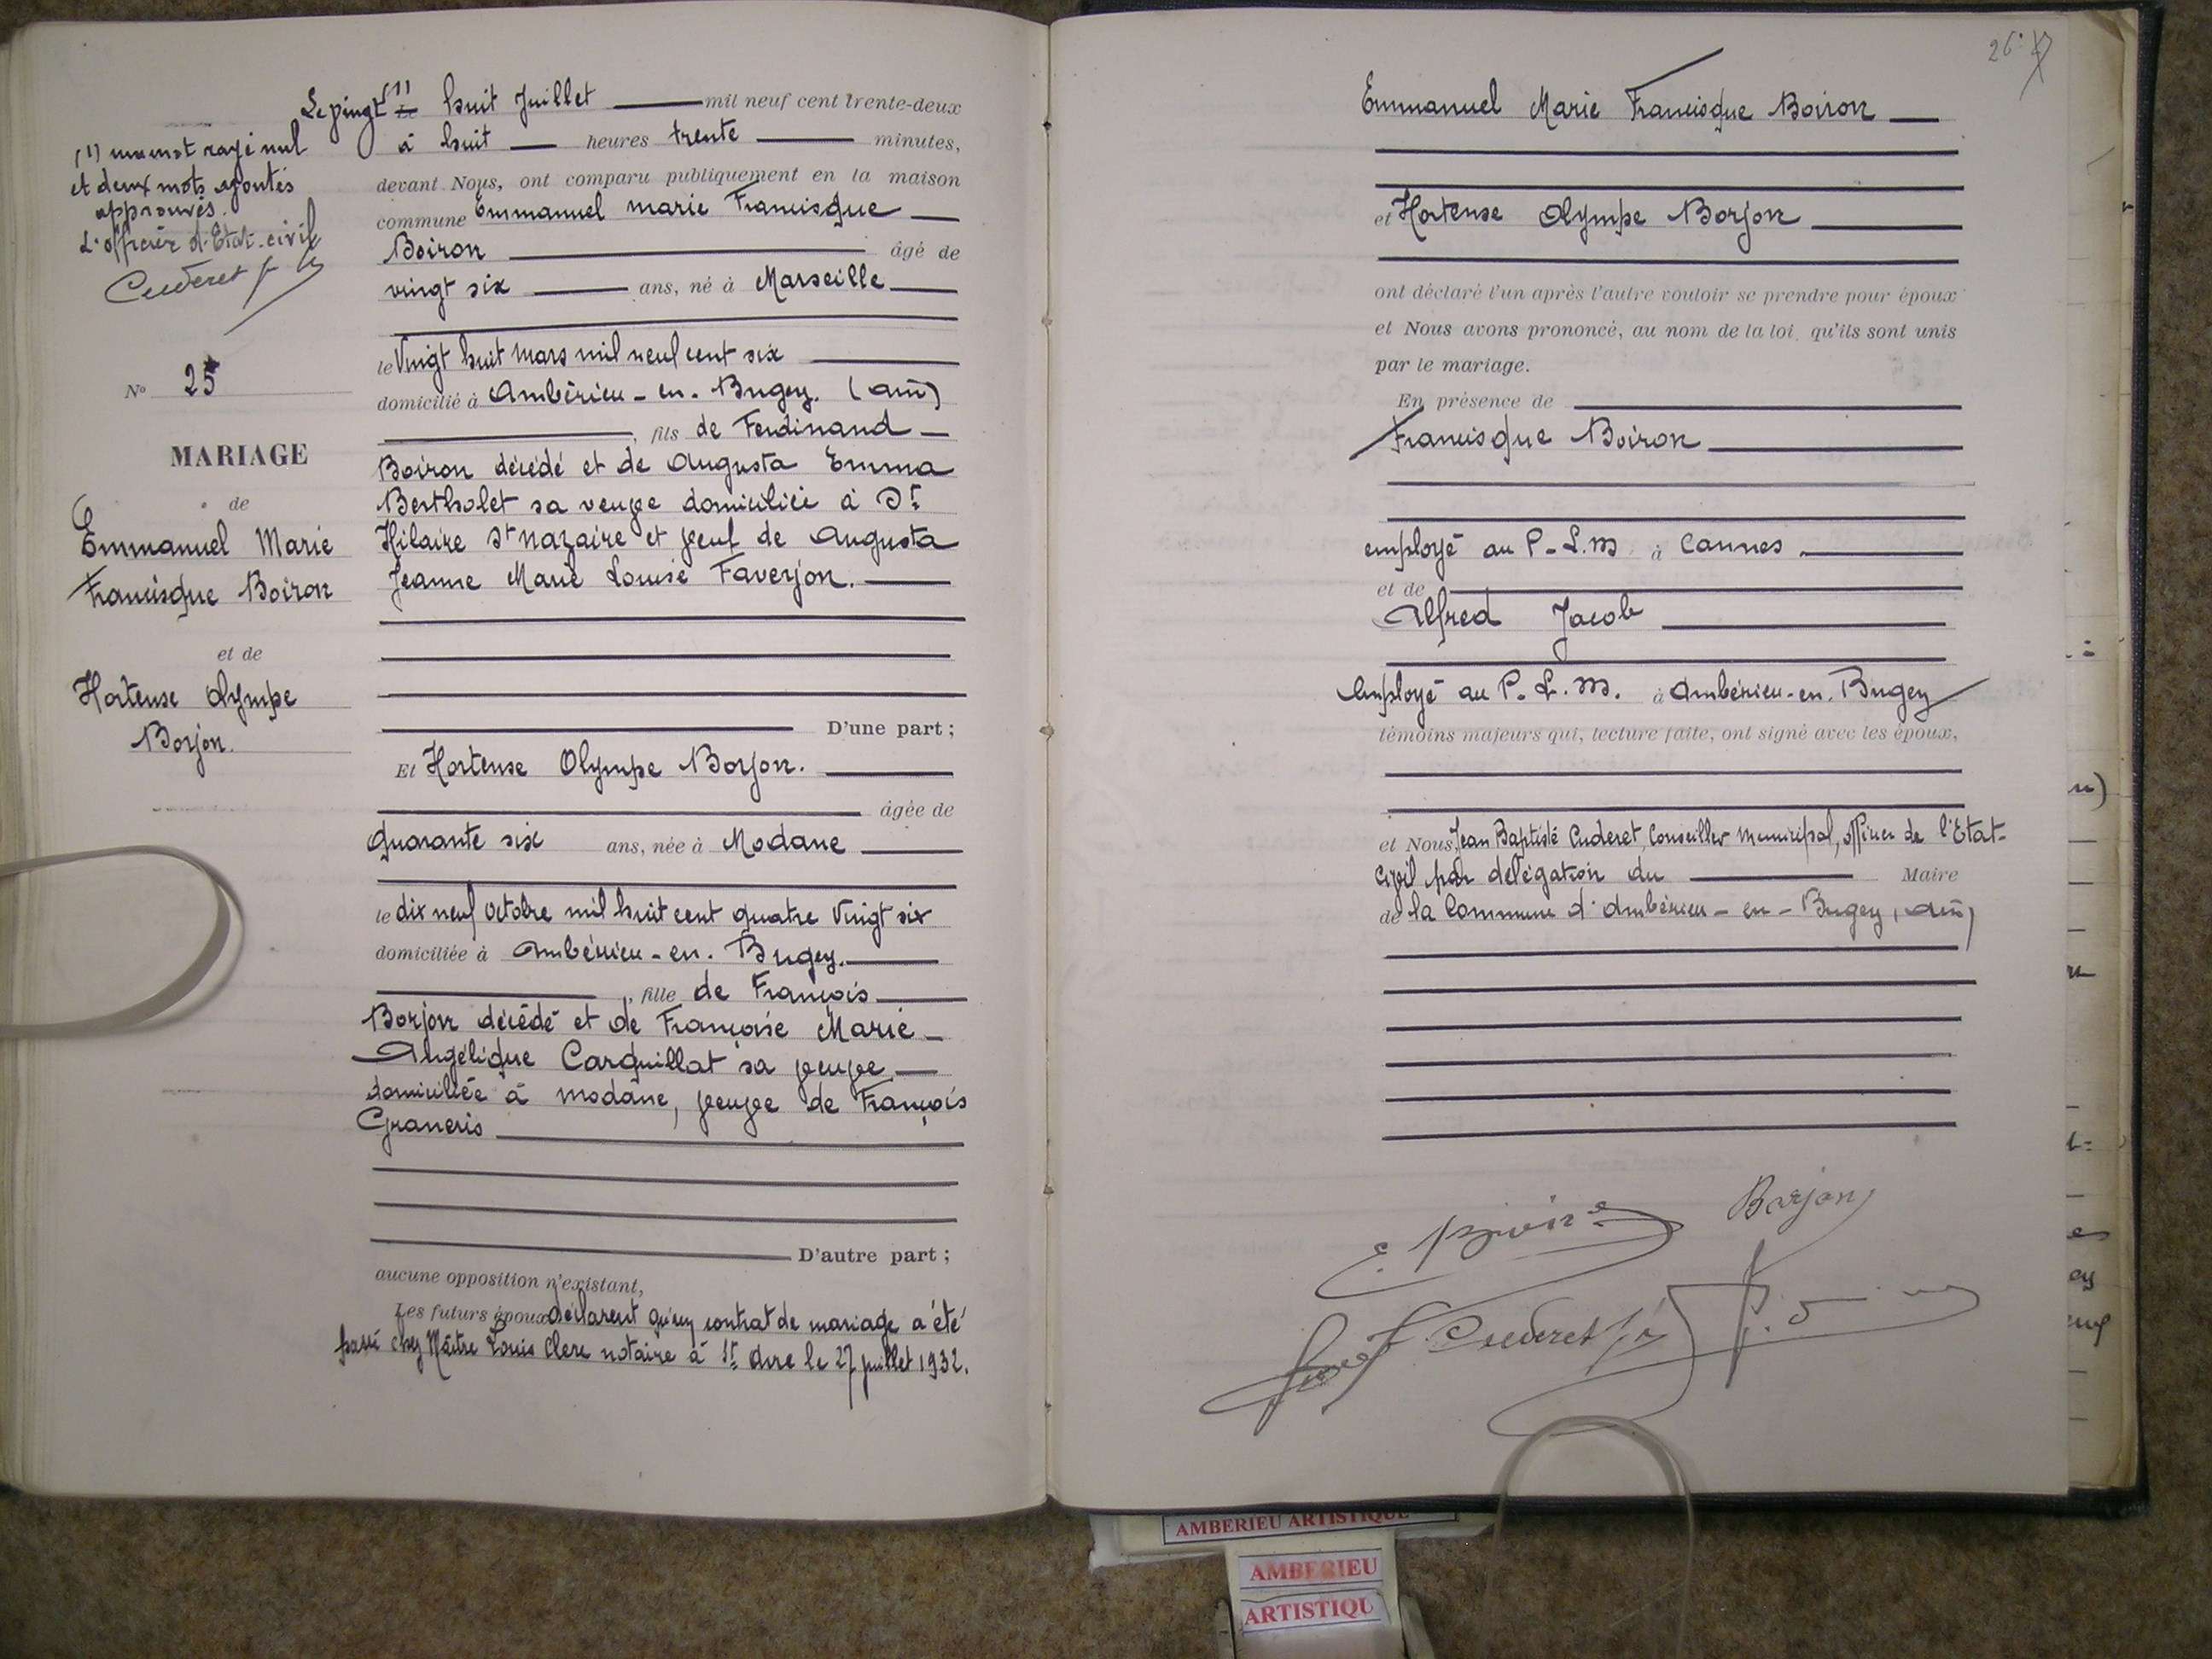 Le vingt (1) le huit Juillet mil neuf cent trente-deux
à huit heures trente minutes,
devant Nous, ont comparu publiquement en la maison
commune Emmanuel marie Francisque
Boiron âgé de
vingt six ans, né à Marseille
le Vingt huit mars mil neuf cent six
domicilié à Ambérieu-en-Bugey. (ain)
, fils de Ferdinand
Boiron décédé et de Augusta Emma
Bertholet sa veuve domiciliée à St
Hilaire St nazaire et veuf de Augusta
Jeanne Marie Louise Faverjon.
D'une part ;
Et Hortense Olympe Borjon.
âgée de
quarante six ans, née à Modane
le dix neuf octobre mil huit cent quatre vingt six
domiciliée à Ambérieu-en-Bugey.
, fille de François
Borjon décédé et de Françoise Marie
Angélique Carquillat sa veuve
domiciliée à modane, veuve de François
Graneris
D'autre part ;
aucune opposition n'existant,
Les futurs époux déclarent qu'un contrat de mariage a été
passé chez Maître Louis Clerc notaire à St le 27 juillet 1932.
(1) un mot rayé nul
et deux mots ajoutés
approuvés.
L'officier d'Etat-civil
Cuderet
No 25
MARIAGE
de
Emmanuel Marie
Francisque Boiron
et de
Hortense Olympe
Borjon.
26
Emmanuel Marie Francisque Boiron
et Hortense Olympe Borjon
ont déclaré l'un après l'autre vouloir se prendre pour époux
et Nous avons prononcé, au nom de la loi, qu'ils sont unis
par le mariage.
En présence de
Francisque Boiron
employé au P-L.M à Cannes
et de
Alfred Jacob
Employé au P.L.M. à Ambérieu-en-Bugey
témoins majeurs qui, lecture faite, ont signé avec les époux,
et Nous, Jean Baptiste Cuderet, Conseiller municipal, officier de l'Etat-
Civil par délégation du Maire
de la Commune d'Ambérieu-en-Bugey, (ain)
E. Boiron
Borjon
Cuderet
AMBERIEU ARTISTIQUE
AMBERIEU
ARTISTIQU